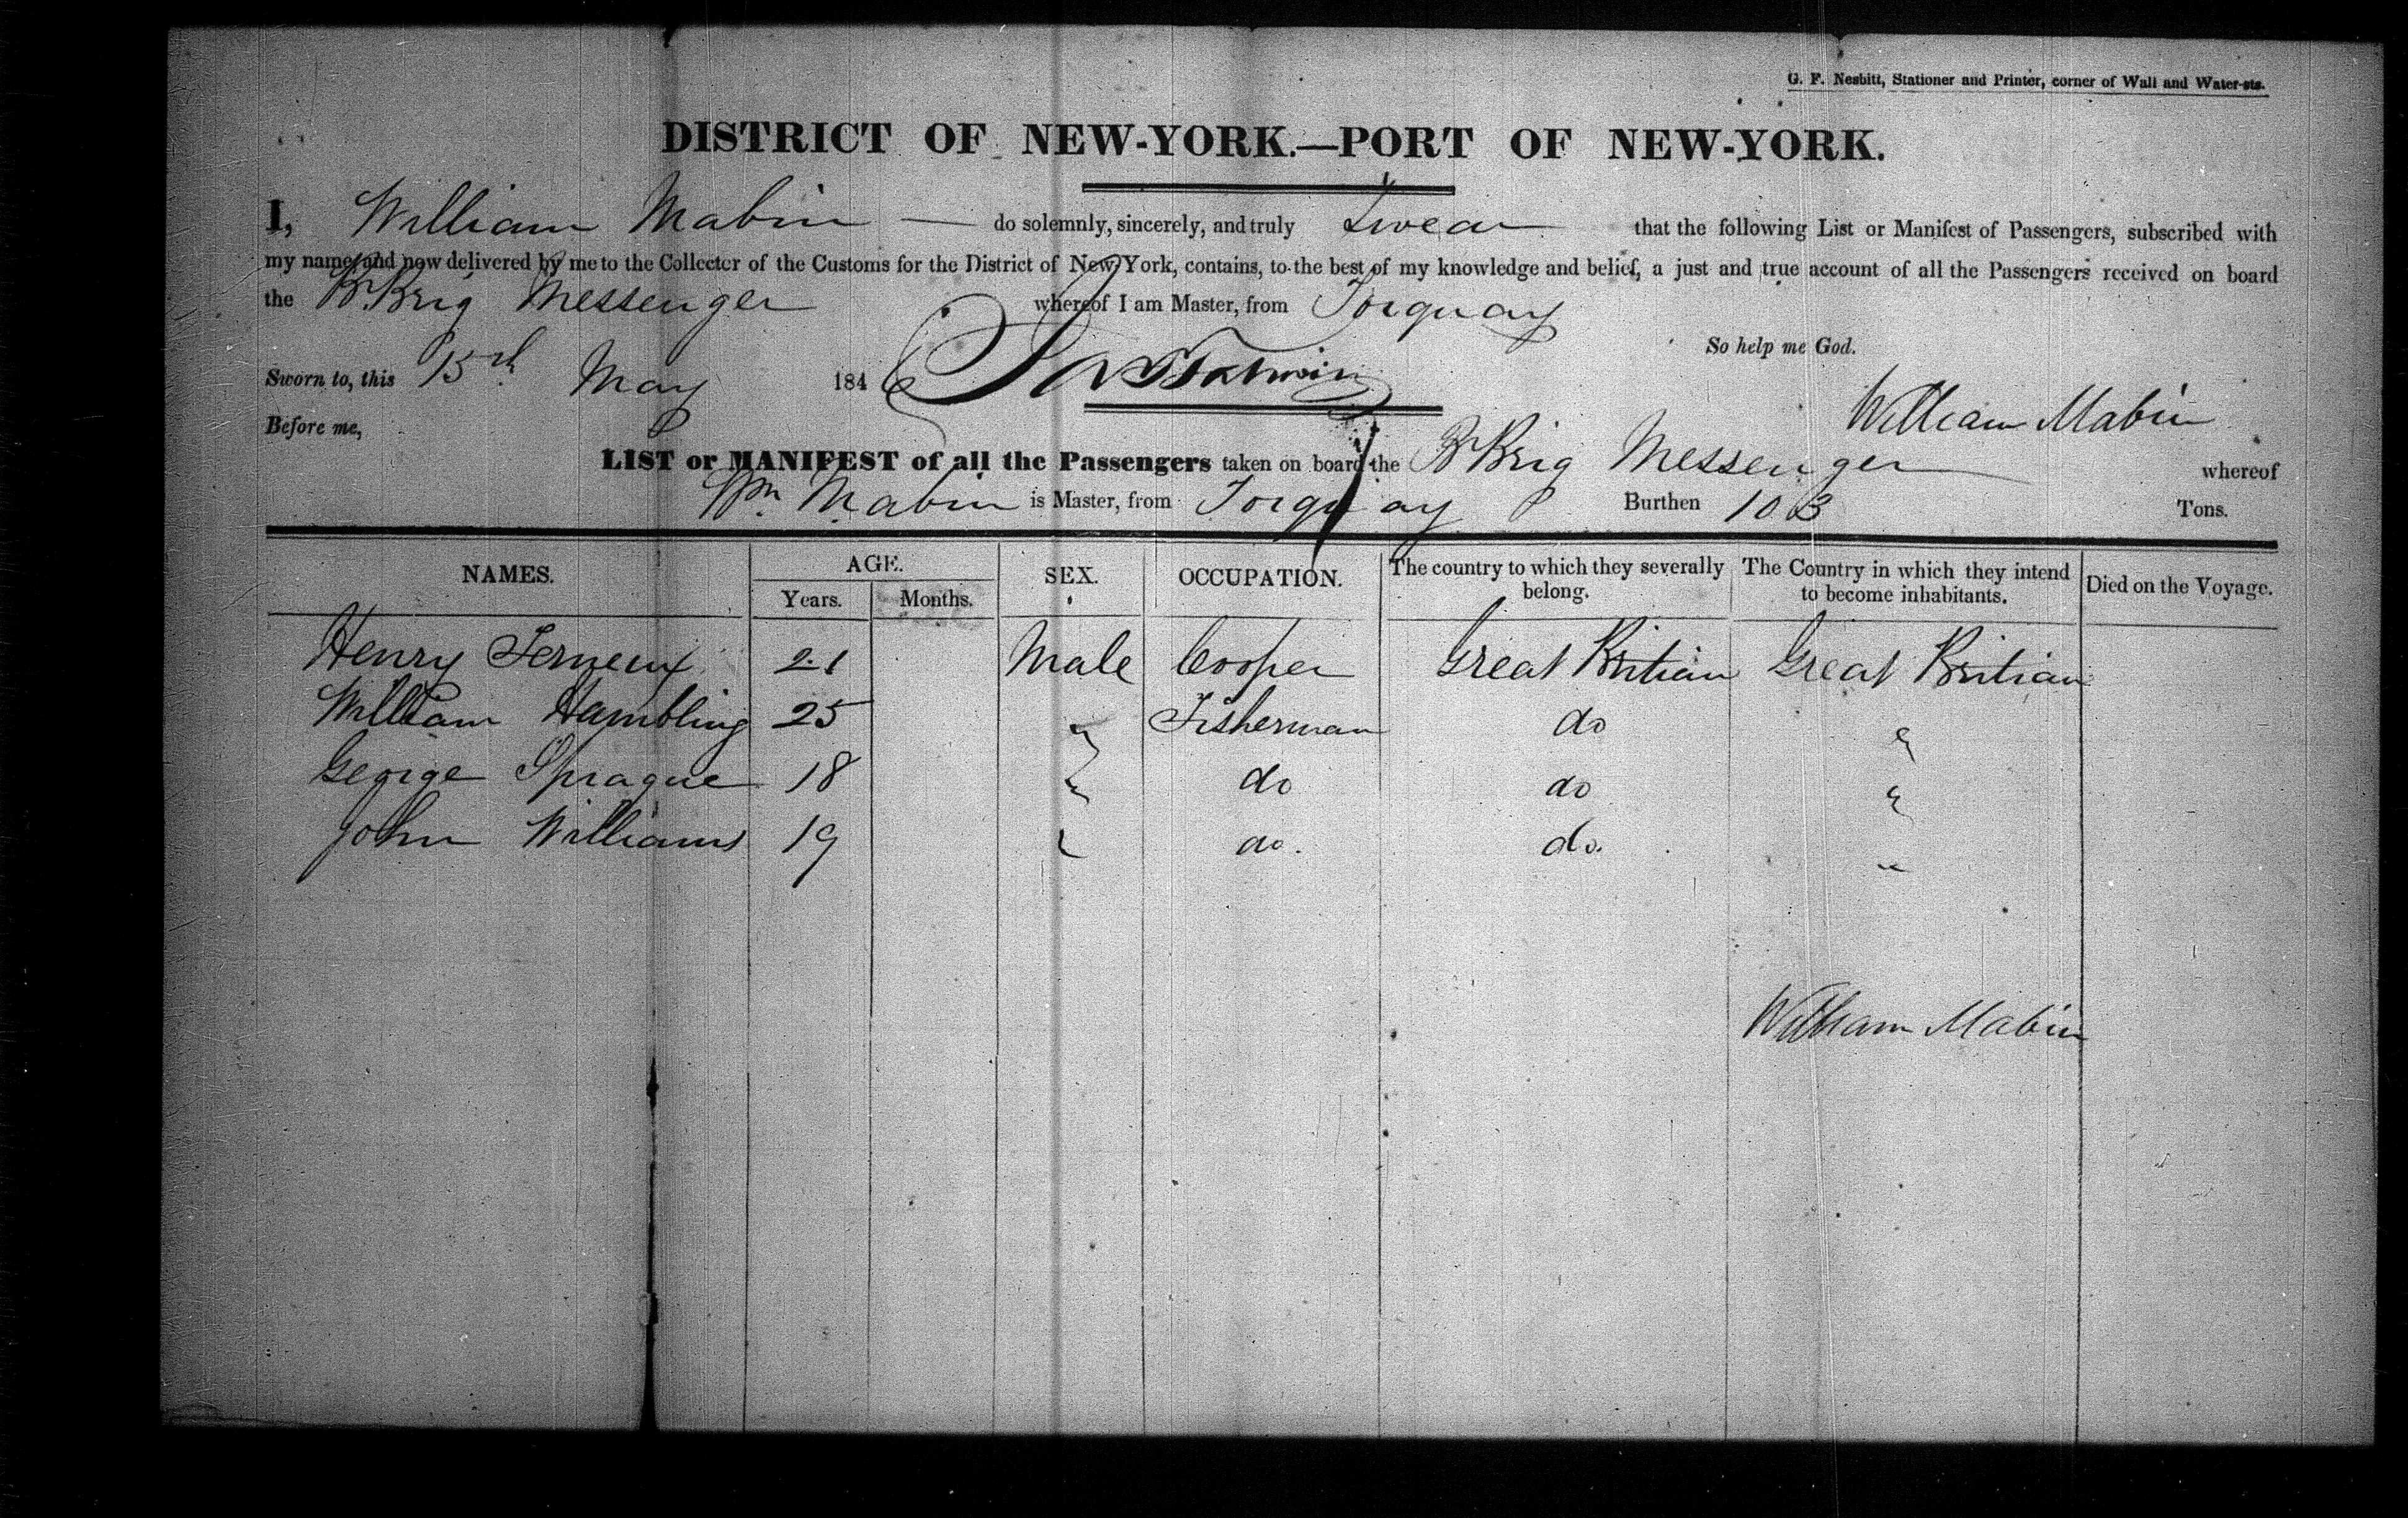 G. F. Nesbitt, Stationer and Printer, corner of Wall and Water-sts.
DISTRICT OF NEW-YORK.—PORT OF NEW-YORK.
I, William Mabin — do solemnly, sincerely, and truly Swear that the following List or Manifest of Passengers, subscribed with
my name, and now delivered by me to the Collector of the Customs for the District of New-York, contains, to the best of my knowledge and belief, a just and true account of all the Passengers received on board
the Br Brig Messenger whereof I am Master, from Torquay
So help me God.
Sworn to, this 15th May 1846
William Mabin
Before me,
LIST or MANIFEST of all the Passengers taken on board the Br Brig Messenger whereof
Wm Mabin is Master, from Torquay Burthen 103 Tons.
NAMES. AGE. Years. Months. SEX. OCCUPATION. The country to which they severally belong. The Country in which they intend to become inhabitants. Died on the Voyage.
Henry 21 Male Cooper Great Britian Great Britian
William Hambling 25 " Fisherman do "
George Sprague 18 " do do "
John Williams 19 " do. do. "
William Mabin